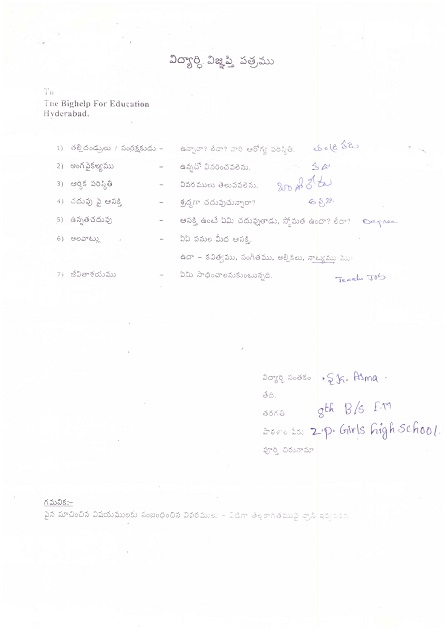 విద్యార్ధి విజ్ఞప్తి పత్రము
To
The Bighelp For Education
Hyderabad.
1) తల్లిదండ్రులు / సంరక్షకుడు - ఉన్నారా? లేదా? వారి ఆరోగ్య పరిస్థితి.
2) అంగవైకల్యము - ఉన్నచో వివరించవలెను.
3) ఆర్ధిక పరిస్థితి - వివరములు తెలుపవలెను.
4) చదువు పై ఆసక్తి - శ్రద్ధగా చదువుచున్నారా?
5) ఉన్నతచదువు - ఆసక్తి ఉంటే ఏమి చదువుతాడు, స్తోమత ఉందా? లేదా? Degree
6) అలవాట్లు - ఏఏ పనుల మీద ఆసక్తి.
ఉదా - కవిత్వము, సంగీతము, అల్లికలు, నాట్యము
7) జీవితాశయము - ఏమి సాధించాలనుకుంటున్నారు. Teach Job
విద్యార్ధి సంతకం • SK. Asma
తేది.
తరగతి 8th B/S E.M
పాఠశాల పేరు Z.P. Girls high School.
పూర్తి చిరునామా
గమనిక:-
పైన సూచించిన విషయములకు సంబంధించిన వివరములు -